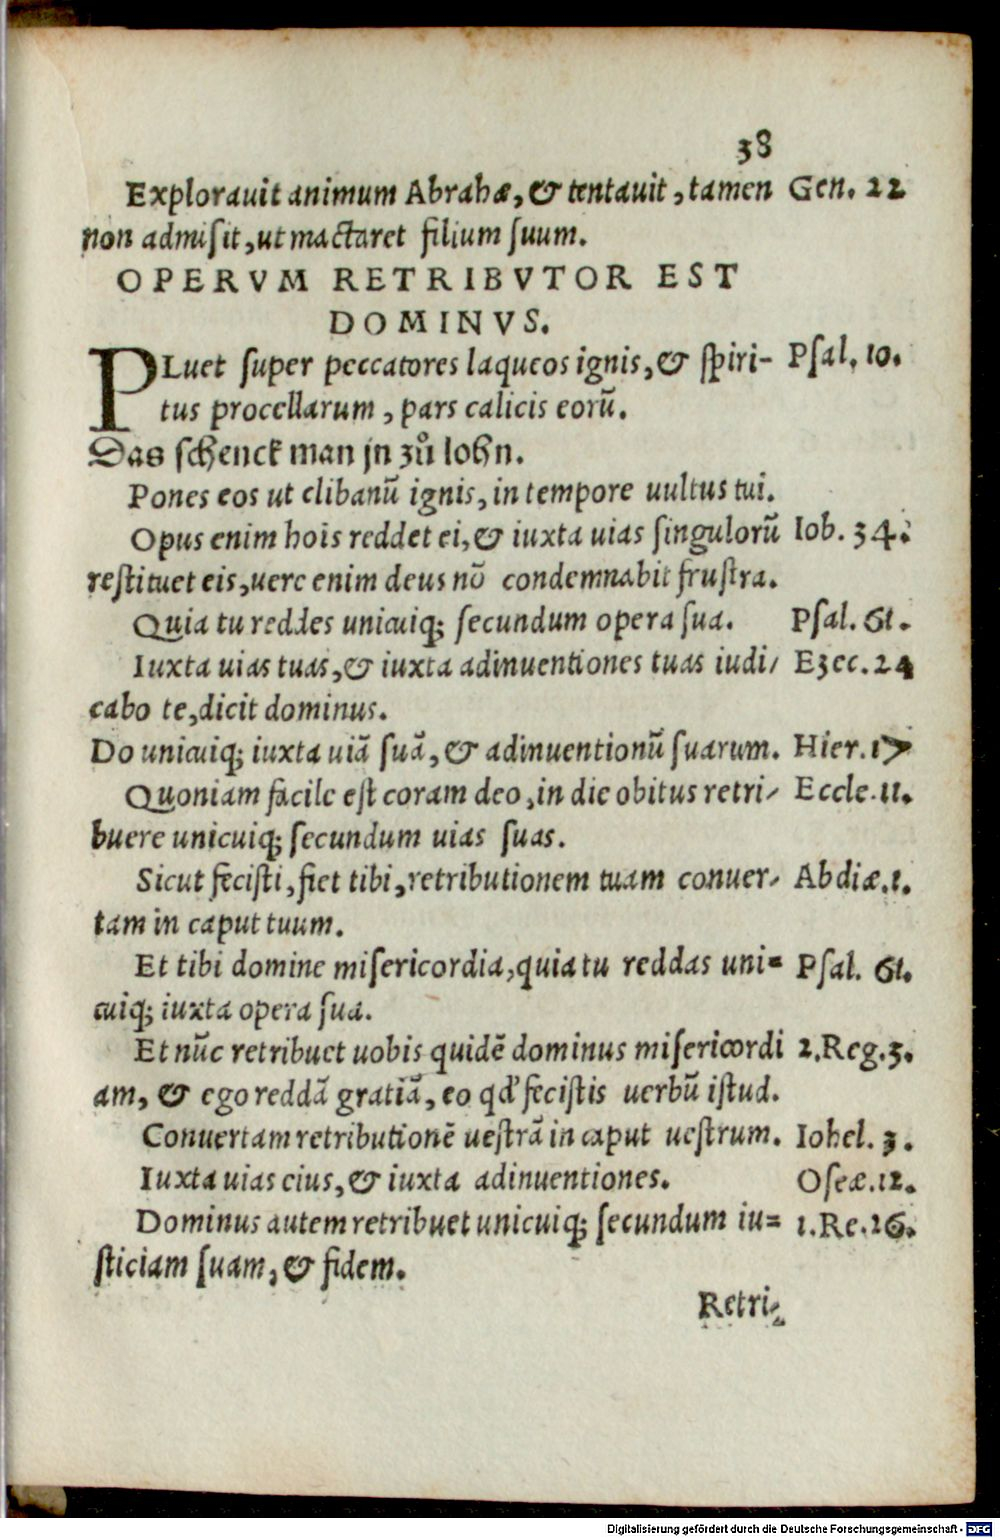 38
Explorauit animum Abrahæ, & tentauit, tamen Gen. 22
non admiſit, ut mactaret filium ſuum.
OPERVM RETRIBVTOR EST
DOMINVS.
PLuet ſuper peccatores laqueos ignis, & ſpiri- Pſal. 10.
tus procellarum, pars calicis eorũ.
Das ſchenck man jn zů lohn.
Pones eos ut clibanũ ignis, in tempore uultus tui.
Opus enim hoĩs reddet ei, & iuxta uias ſingulorũ Iob. 34.
reſtituet eis, uere enim deus nõ condemnabit fruſtra.
Quia tu reddes unicuiq; ſecundum opera ſua. Pſal. 61.
Iuxta uias tuas, & iuxta adinuentiones tuas iudi- Ezec. 24
cabo te, dicit dominus.
Do unicuiq; iuxta uiã ſuã, & adinuentionũ ſuarum. Hier. 17
Quoniam facile eſt coram deo, in die obitus retri- Eccle. 11.
buere unicuiq; ſecundum uias ſuas.
Sicut feciſti, fiet tibi, retributionem tuam conuer- Abdiæ. 1.
tam in caput tuum.
Et tibi domine miſericordia, quia tu reddas uni= Pſal. 61.
cuiq; iuxta opera ſua.
Et nũc retribuet uobis quidẽ dominus miſericordi 2. Reg. 3.
am, & ego reddã gratiã, eo qđ feciſtis uerbũ iſtud.
Conuertam retributionẽ ueſtrã in caput ueſtrum. Iohel. 3.
Iuxta uias eius, & iuxta adinuentiones. Oſeæ. 12.
Dominus autem retribuet unicuiq; ſecundum iu= 1. Re. 26.
ſticiam ſuam, & fidem.
Retri-
Digitalisierung gefördert durch die Deutsche Forschungsgemeinschaft - DFG